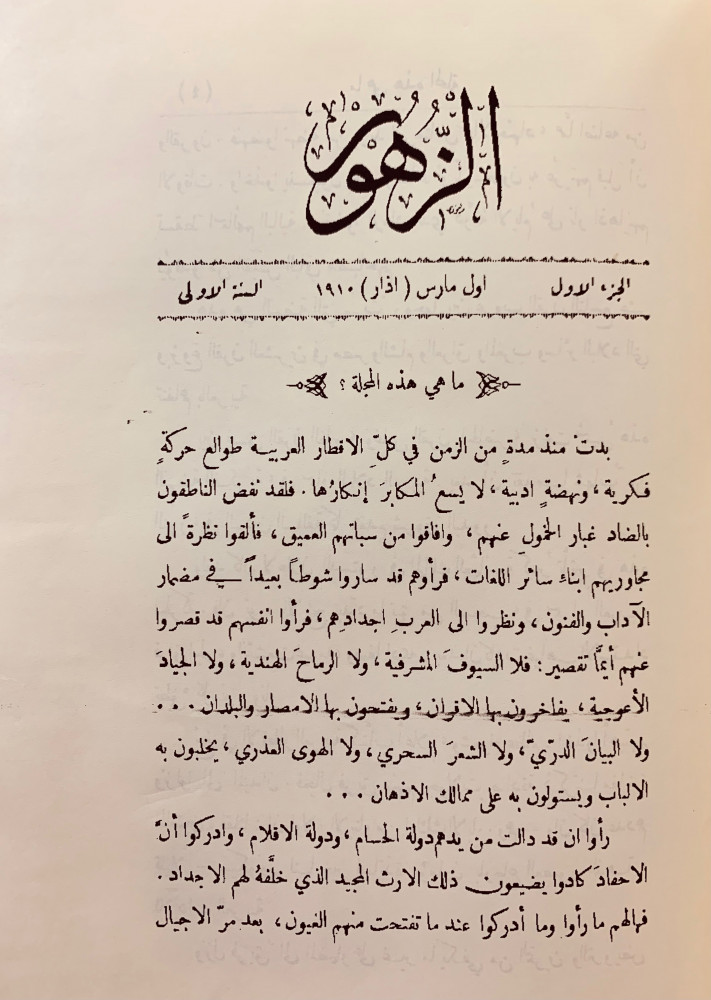 الزهور
الجزء الاول اول مارس (اذار) ١٩١٠ السنة الاولى
ما هي هذه المجلة ؟
بدتْ منذ مدةٍ من الزمن في كلّ الاقطار العربية طوالع حركةٍ
فكرية ، ونهضةٍ ادبية ، لا يسعُ المكابرَ إنكارُها . فلقد نفض الناطقون
بالضاد غبار الخمولِ عنهم ، وافاقوا من سباتهم العميق ، فألقوا نظرةً الى
مجاوريهم ابناءِ سائر اللغات ، فرأوهم قد ساروا شوطاً بعيداً في مضمار
الآداب والفنون ، ونظروا الى العربِ اجدادِهم ، فرأوا انفسهم قد قصروا
عنهم أيمَّا تقصير : فلا السيوفَ المشرفية ، ولا الرماحَ الهندية ، ولا الجيادَ
الأعوجية ، يفاخرون بها الاقران ، ويفتحون بها الامصار والبلدان . . .
ولا البيانَ الدرّيّ ، ولا الشعرَ السحري ، ولا الهوى العذري ، يخلبون به
الالباب ويستولون به على ممالك الاذهان . . .
رأوا ان قد دالت من يدهم دولة الحسام ، ودولة الاقلام ، وادركوا أنَّ
الاحفادَ كادوا يضيعون ذلك الارث المجيد الذي خلَّفهُ لهم الاجداد .
فهالهم ما رأوا وما أدركوا عند ما تفتحت منهم العيون ، بعد مرّ الاجيال